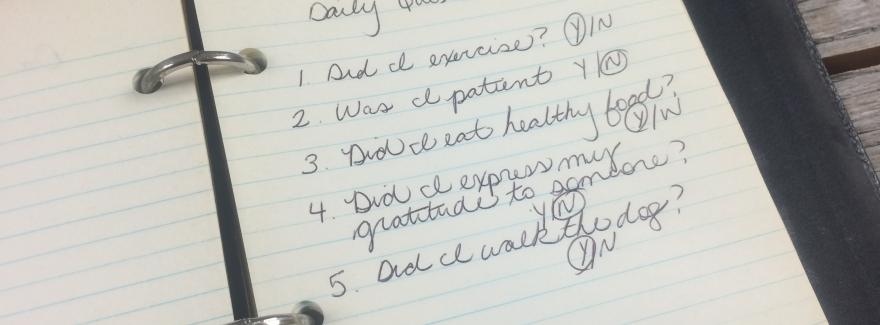 Daily
1. Did I exercise? Y/N
2. Was I patient Y/N
3. Did I eat healthy food?
Y/N
4. Did I express my
gratitude to someone?
Y/N
5. Did I walk the dog?
Y/N